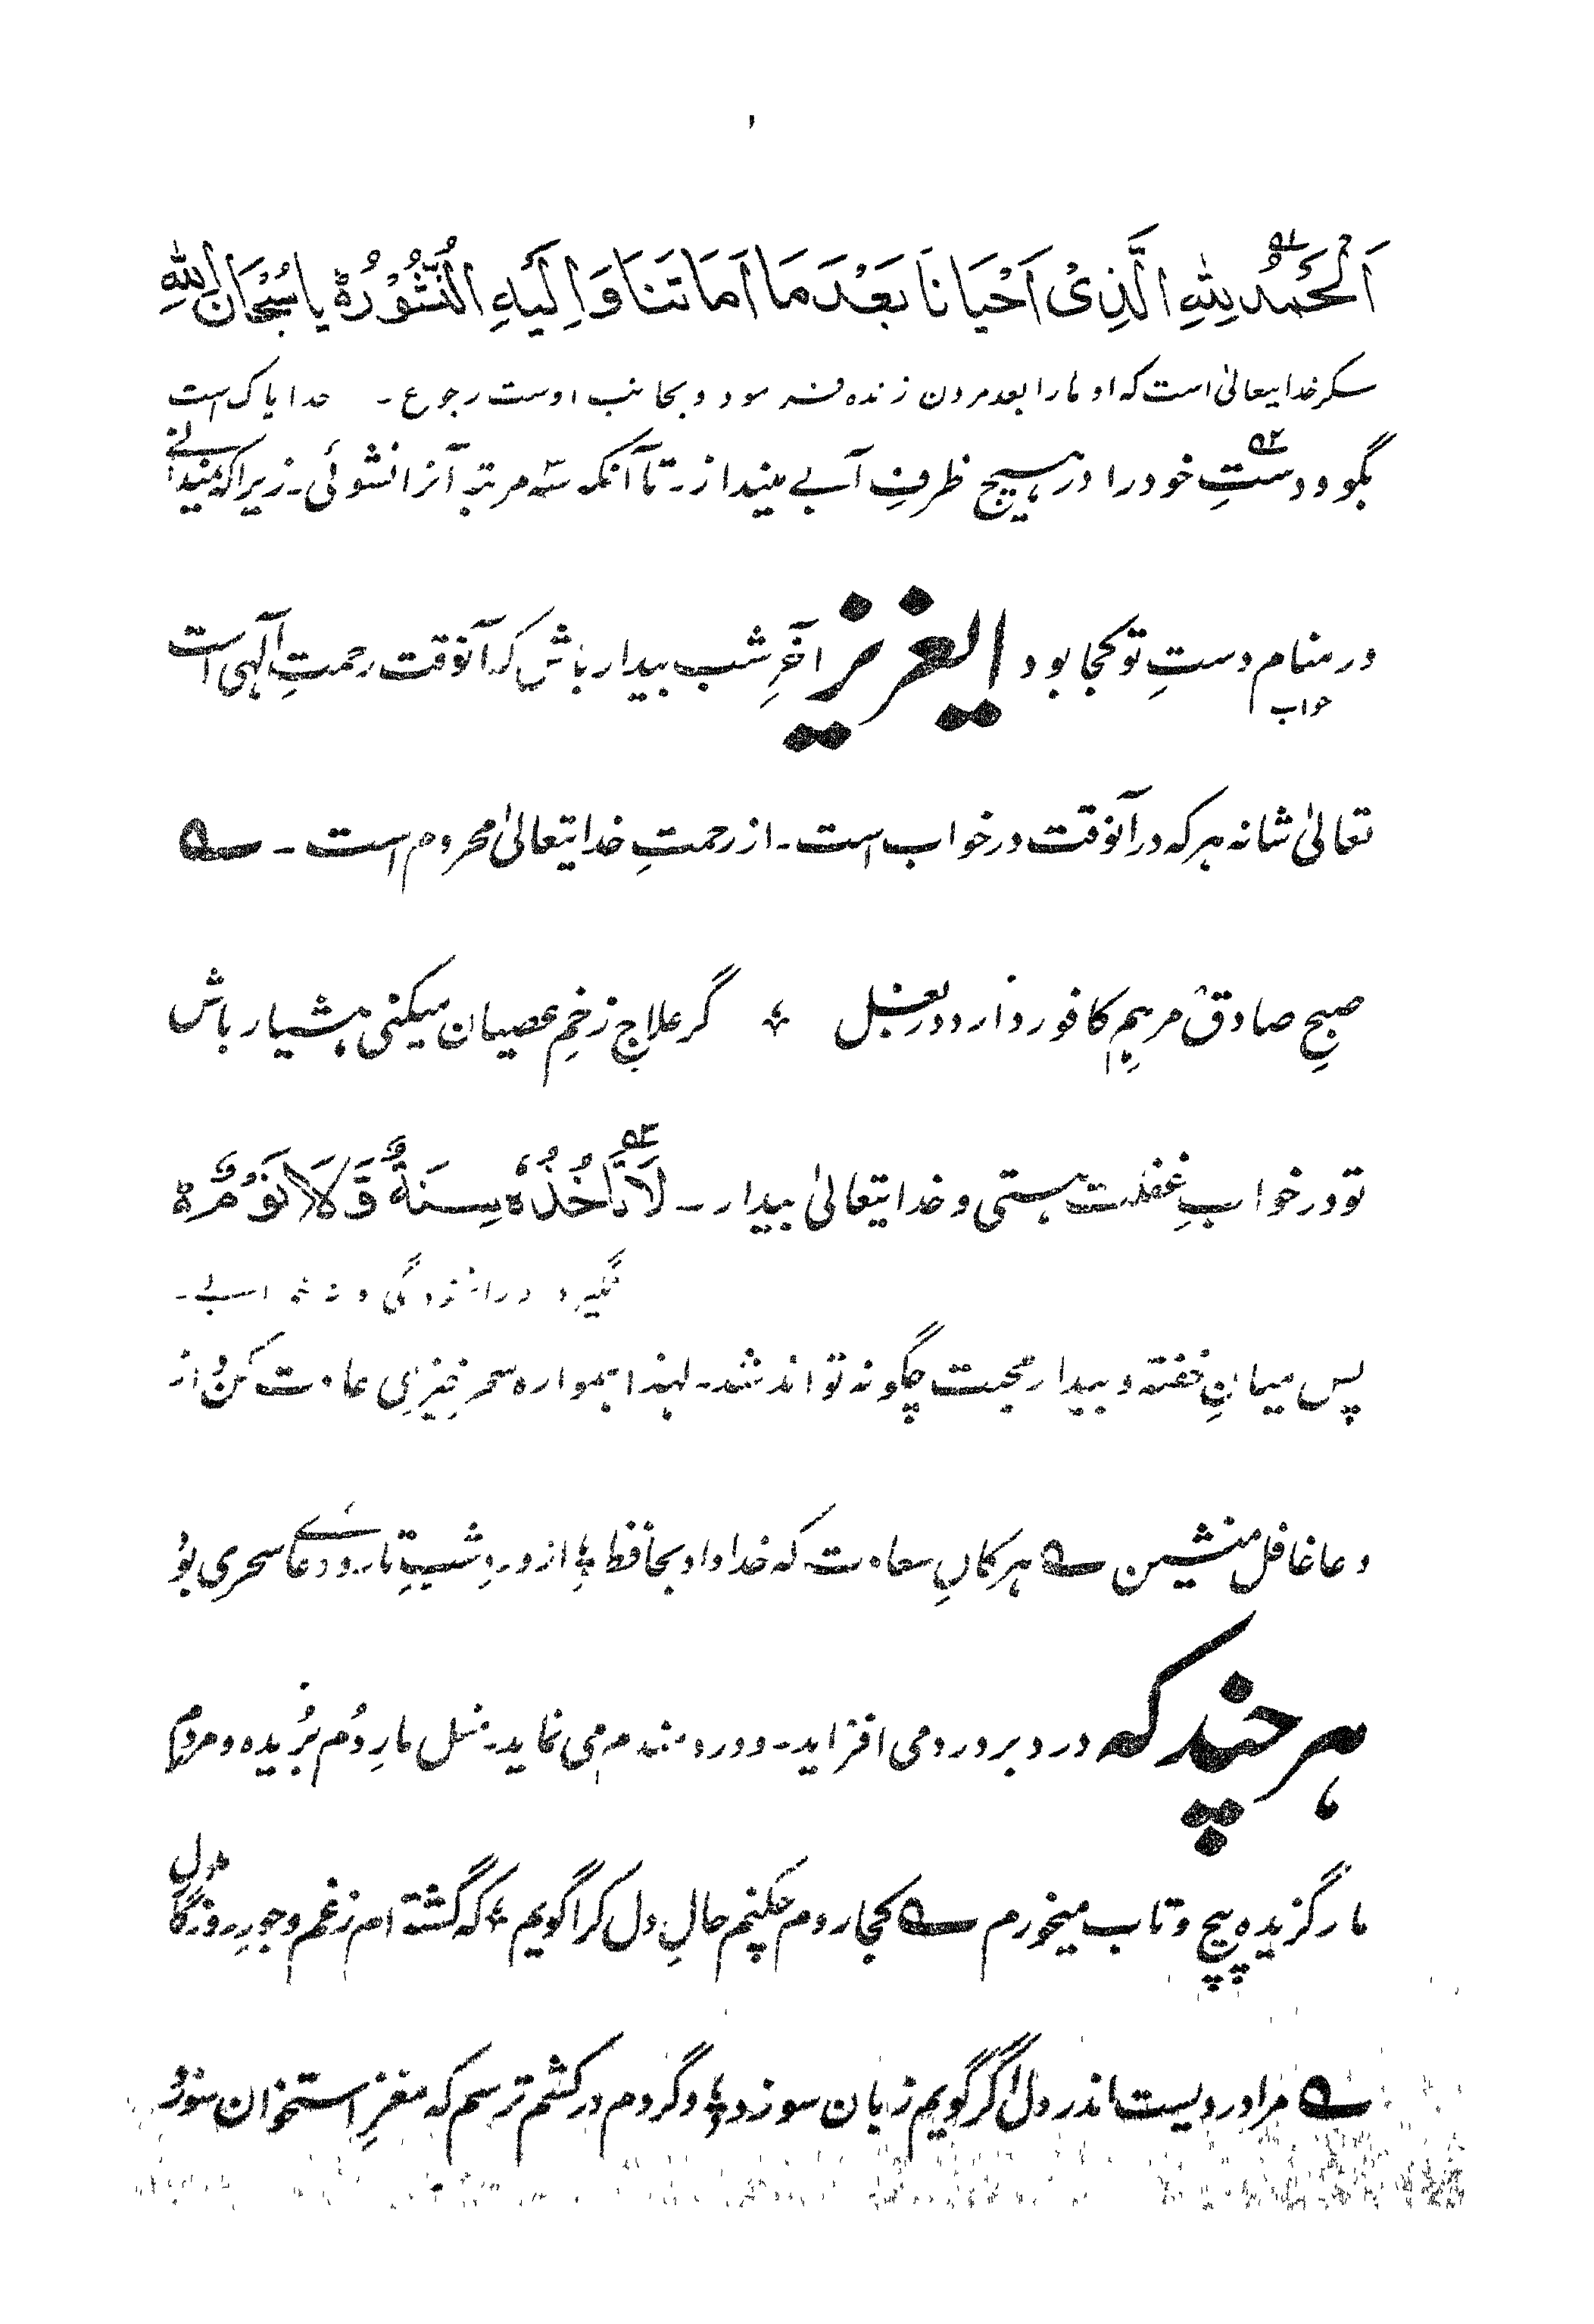 اَلْحَمْدُ لِلّٰهِ الَّذِیْ اَحْیَانَا بَعْدَ مَا اَمَاتَنَا وَ اِلَیْهِ النُّشُوْرُ ۃ یا سُبْحَانَ اللّٰهِ
شکر خدایتعالیٰ است که او مارا بعد مردن زنده فرمود و بجانب اوست رجوع ۔ خدا پاک است
بگو و دستِ خود را در هیچ ظرفِ آبے مینداز ۔ تا آنکه سه مرتبه آنرا نشوئی ۔ زیرا که نمیدانے
در منام دستِ تو کجا بود ایعزیز آخرِ شب بیدار باش که آنوقت رحمتِ الٰهی است
خواب
تعالیٰ شانه هر که در آنوقت در خواب است ۔ از رحمتِ خدایتعالیٰ محروم است ۔ ؎
صبحِ صادق مرهمِ کافور دارد در بغل ؛ گر علاجِ زخمِ عصیان میکنی هشیار باش
تو در خوابِ غفلت هستی و خدایتعالیٰ بیدار ۔ لَا تَأْخُذُهٗ سِنَةٌ وَّلَا نَوْمٌ ۃ
نگیرد ورا غنودگی و نه خوابے ۔
پس میانِ خفته و بیدار محبت چگونه تواند شد ۔ لهٰذا همواره سحر خیزی عادت کُن و از
دعا غافل منشین ؎ هر کان سعادت که خدا داد بحافظ ؛ از وردِ شب و دعائے سحری بود
هر چند که درد بر درد می افزاید ۔ و دردمندم می نماید ۔ مثل مارِ دُم بُریده و مردم
مار گزیده پیچ و تاب میخورم ؎ کجا روم چکنم حالِ دل کرا گویم ؛ که گشته ام ز غم و جورِ روزگار ملول
؎ مرا دردیست اندر دل اگر گویم زبان سوزد ؛ وگر دم در کشم ترسم که مغزِ استخوان سوزد